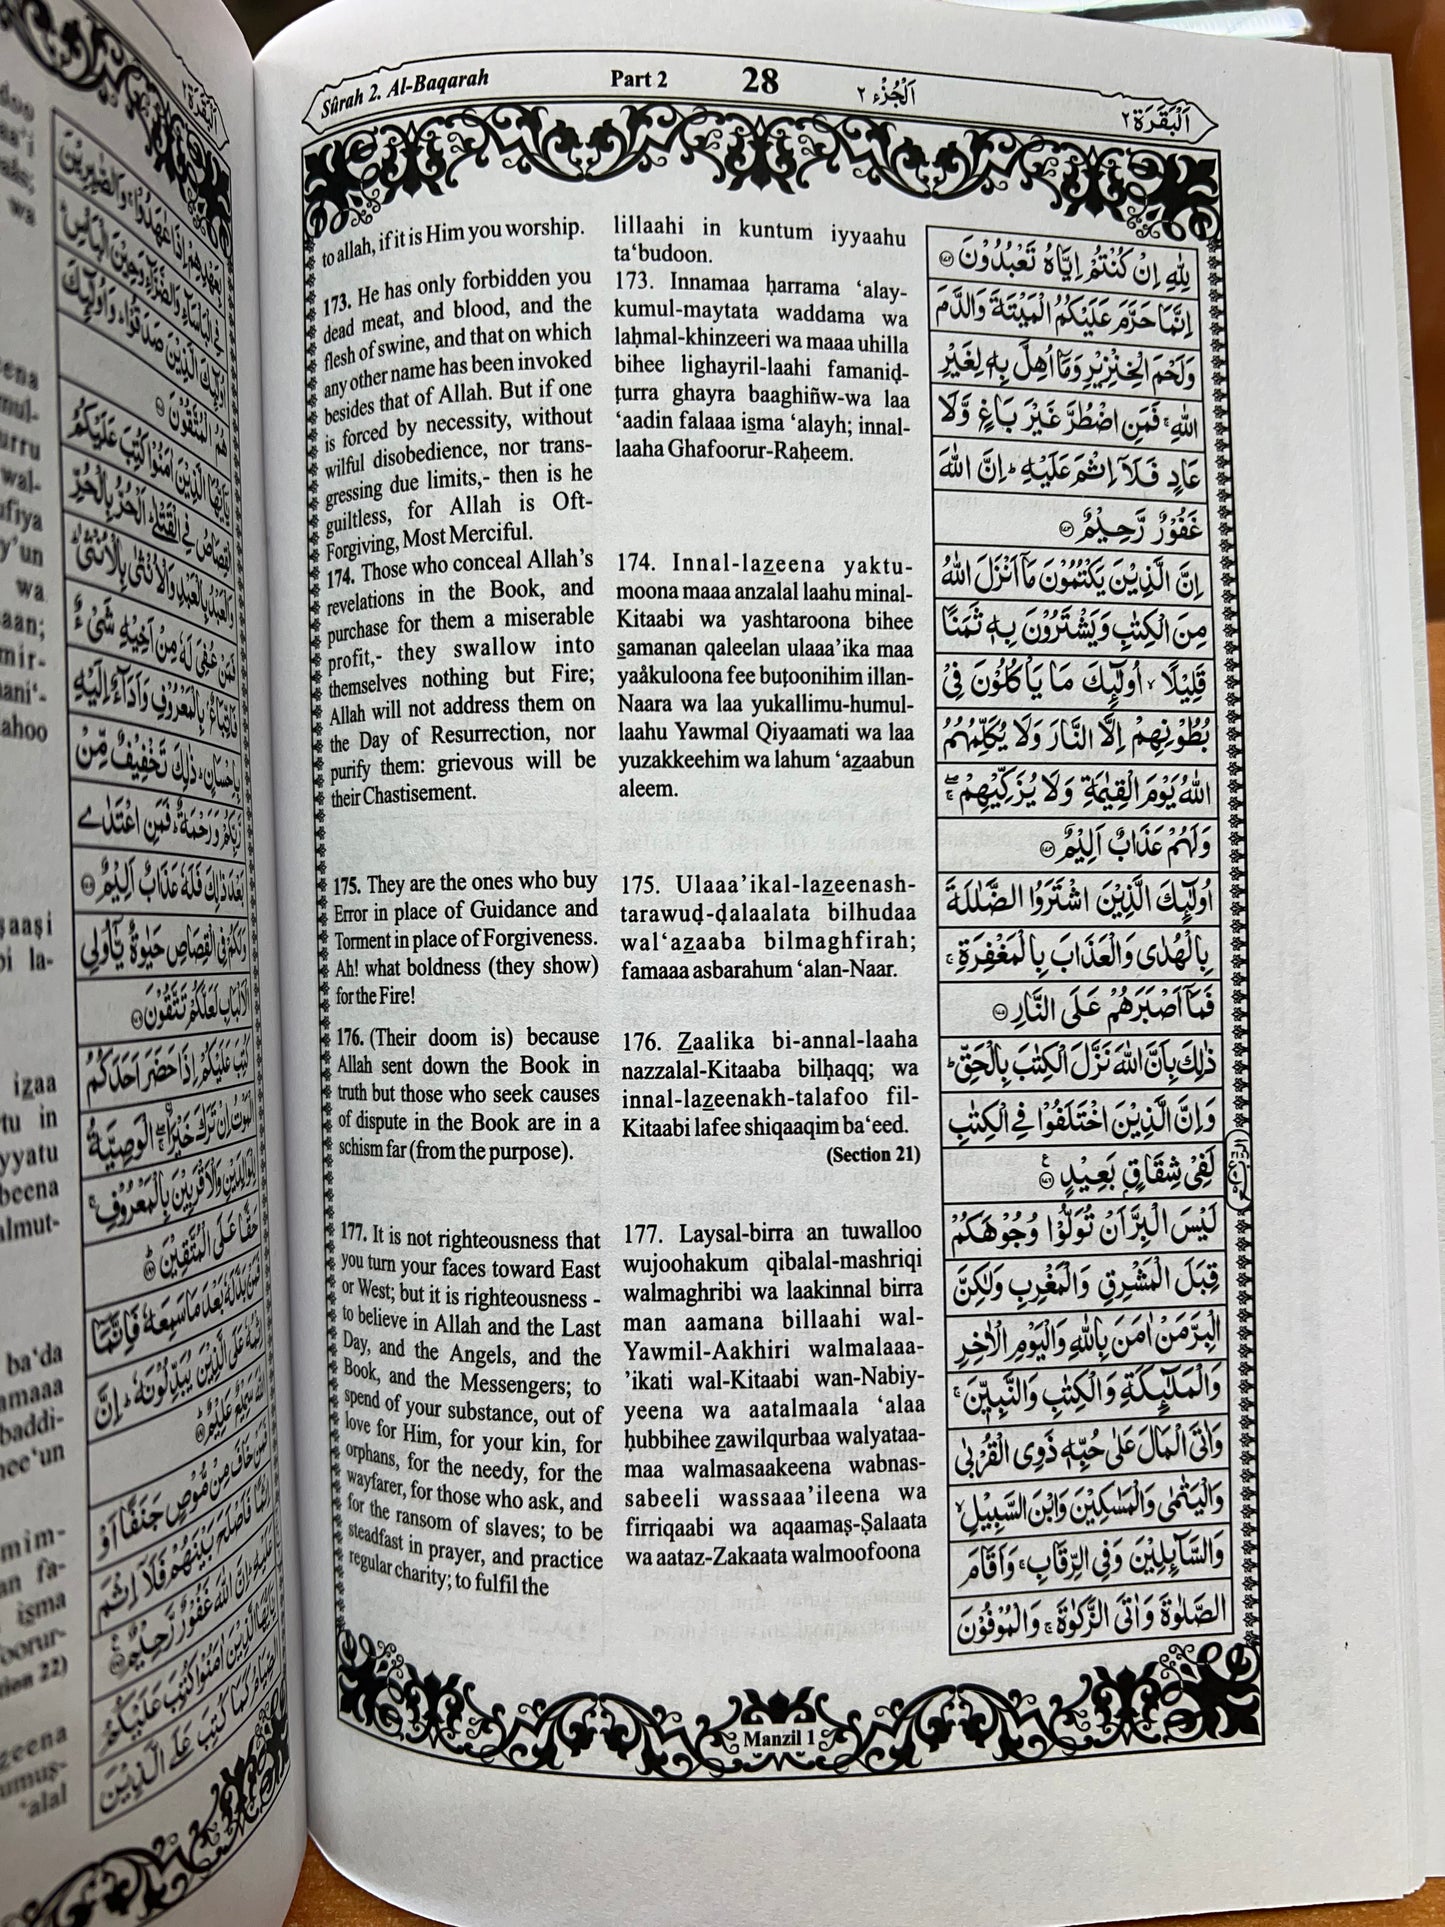 البقرة ٢
بعهدهم اذا عهدوا ۚ والصبرين
في الباساء والضراء وحين الباس ؕ
اولٓئك الذين صدقوا ؕ واولٓئك
هم المتقون
يايها الذين امنوا كتب عليكم
القصاص في القتلى ؕ الحر بالحر
والعبد بالعبد والانثى بالانثى ؕ
فمن عفي له من اخيه شيء
فاتباع بالمعروف واداء اليه
باحسان ؕ ذلك تخفيف من
ربكم ورحمة ؕ فمن اعتدى
بعد ذلك فله عذاب اليم
ولكم في القصاص حيوة ياولي
الالباب لعلكم تتقون
كتب عليكم اذا حضر احدكم
الموت ان ترك خيرا ۖۚ الوصية
للوالدين والاقربين بالمعروف ۚ
حقا على المتقين
فمن بدله بعد ما سمعه فانما
اثمه على الذين يبدلونه ؕ ان
الله سميع عليم
فمن خاف من موص جنفا او
اثما فاصلح بينهم فلا اثم
عليه ؕ ان الله غفور رحيم
يايها الذين امنوا كتب عليكم
الصيام كما كتب على الذين
Sûrah 2. Al-Baqarah Part 2 28 اَلْجُزْء ٢ اَلْبَقَرَة ٢
to allah, if it is Him you worship.
173. He has only forbidden you
dead meat, and blood, and the
flesh of swine, and that on which
any other name has been invoked
besides that of Allah. But if one
is forced by necessity, without
wilful disobedience, nor trans-
gressing due limits,- then is he
guiltless, for Allah is Oft-
Forgiving, Most Merciful.
174. Those who conceal Allah's
revelations in the Book, and
purchase for them a miserable
profit,- they swallow into
themselves nothing but Fire;
Allah will not address them on
the Day of Resurrection, nor
purify them: grievous will be
their Chastisement.
175. They are the ones who buy
Error in place of Guidance and
Torment in place of Forgiveness.
Ah! what boldness (they show)
for the Fire!
176. (Their doom is) because
Allah sent down the Book in
truth but those who seek causes
of dispute in the Book are in a
schism far (from the purpose).
177. It is not righteousness that
you turn your faces toward East
or West; but it is righteousness -
to believe in Allah and the Last
Day, and the Angels, and the
Book, and the Messengers; to
spend of your substance, out of
love for Him, for your kin, for
orphans, for the needy, for the
wayfarer, for those who ask, and
for the ransom of slaves; to be
steadfast in prayer, and practice
regular charity; to fulfil the
lillaahi in kuntum iyyaahu
ta'budoon.
173. Innamaa ḥarrama ‘alay-
kumul-maytata waddama wa
laḥmal-khinzeeri wa maaa uhilla
bihee lighayril-laahi famaniḍ-
ṭurra ghayra baaghiñw-wa laa
‘aadin falaaa isma ‘alayh; innal-
laaha Ghafoorur-Raḥeem.
174. Innal-lazeena yaktu-
moona maaa anzalal laahu minal-
Kitaabi wa yashtaroona bihee
samanan qaleelan ulaaa’ika maa
yaåkuloona fee buṭoonihim illan-
Naara wa laa yukallimu-humul-
laahu Yawmal Qiyaamati wa laa
yuzakkeehim wa lahum ‘azaabun
aleem.
175. Ulaaa’ikal-lazeenash-
tarawuḍ-ḍalaalata bilhudaa
wal‘azaaba bilmaghfirah;
famaaa asbarahum ‘alan-Naar.
176. Zaalika bi-annal-laaha
nazzalal-Kitaaba bilḥaqq; wa
innal-lazeenakh-talafoo fil-
Kitaabi lafee shiqaaqim ba‘eed.
(Section 21)
177. Laysal-birra an tuwalloo
wujoohakum qibalal-mashriqi
walmaghribi wa laakinnal birra
man aamana billaahi wal-
Yawmil-Aakhiri walmalaaa-
’ikati wal-Kitaabi wan-Nabiy-
yeena wa aatalmaala ‘alaa
ḥubbihee zawilqurbaa walyataa-
maa walmasaakeena wabnas-
sabeeli wassaaa’ileena wa
firriqaabi wa aqaamaṣ-Ṣalaata
wa aataz-Zakaata walmoofoona
لِلّٰهِ اِنْ كُنْتُمْ اِيَّاهُ تَعْبُدُوْنَ ١٧٢
اِنَّمَا حَرَّمَ عَلَيْكُمُ الْمَيْتَةَ وَالدَّمَ
وَلَحْمَ الْخِنْزِيْرِ وَمَاۤ اُهِلَّ بِهٖ لِغَيْرِ
اللّٰهِ ۚ فَمَنِ اضْطُرَّ غَيْرَ بَاغٍ وَّلَا
عَادٍ فَلَاۤ اِثْمَ عَلَيْهِ ؕ اِنَّ اللّٰهَ
غَفُوْرٌ رَّحِيْمٌ ١٧٣
اِنَّ الَّذِيْنَ يَكْتُمُوْنَ مَاۤ اَنْزَلَ اللّٰهُ
مِنَ الْكِتٰبِ وَيَشْتَرُوْنَ بِهٖ ثَمَنًا
قَلِيْلًا ۙ اُولٰٓئِكَ مَا يَاْكُلُوْنَ فِيْ
بُطُوْنِهِمْ اِلَّا النَّارَ وَلَا يُكَلِّمُهُمُ
اللّٰهُ يَوْمَ الْقِيٰمَةِ وَلَا يُزَكِّيْهِمْ ۖۚ
وَلَهُمْ عَذَابٌ اَلِيْمٌ ١٧٤
اُولٰٓئِكَ الَّذِيْنَ اشْتَرَوُا الضَّلٰلَةَ
بِالْهُدٰى وَالْعَذَابَ بِالْمَغْفِرَةِ ۚ
فَمَاۤ اَصْبَرَهُمْ عَلَى النَّارِ ١٧٥
ذٰلِكَ بِاَنَّ اللّٰهَ نَزَّلَ الْكِتٰبَ بِالْحَقِّ ؕ
وَاِنَّ الَّذِيْنَ اخْتَلَفُوْا فِي الْكِتٰبِ
لَفِيْ شِقَاقٍۭ بَعِيْدٍ ١٧٦
لَيْسَ الْبِرَّ اَنْ تُوَلُّوْا وُجُوْهَكُمْ
قِبَلَ الْمَشْرِقِ وَالْمَغْرِبِ وَلٰكِنَّ
الْبِرَّ مَنْ اٰمَنَ بِاللّٰهِ وَالْيَوْمِ الْاٰخِرِ
وَالْمَلٰٓئِكَةِ وَالْكِتٰبِ وَالنَّبِيّٖنَ ۚ
وَاٰتَى الْمَالَ عَلٰى حُبِّهٖ ذَوِي الْقُرْبٰى
وَالْيَتٰمٰى وَالْمَسٰكِيْنَ وَابْنَ السَّبِيْلِ ۙ
وَالسَّآئِلِيْنَ وَفِي الرِّقَابِ ۚ وَاَقَامَ
الصَّلٰوةَ وَاٰتَى الزَّكٰوةَ ۚ وَالْمُوْفُوْنَ
Manzil 1